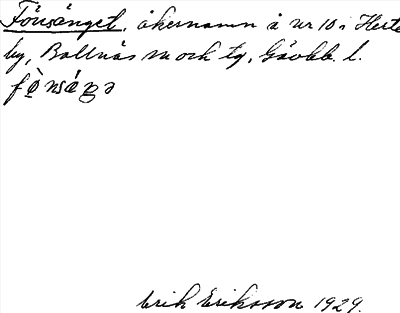 Fönsänget, åkernamn å nr 10 i Herte
by, Bollnäs sn och tg, Gävleb. l.
Erik Eriksson 1929.